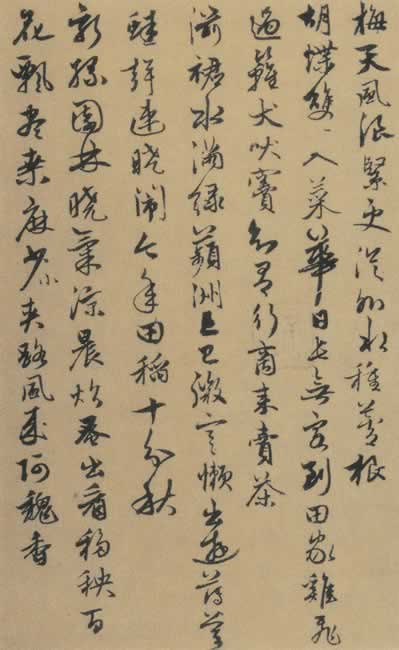 梅天風浪緊更從外水種蘆根
胡蝶雙〻入菜華日長無客到田家雞飛
過籬犬吠竇知有行商來賣茶
湔裙水滿綠蘋洲上巳微寒懶出遊薄暮
蛙聲連曉鬧今年田稻十分秋
新綠園林曉氣涼晨炊蚤出看移秧百
花飄盡桑麻少小夾路風來阿魏香